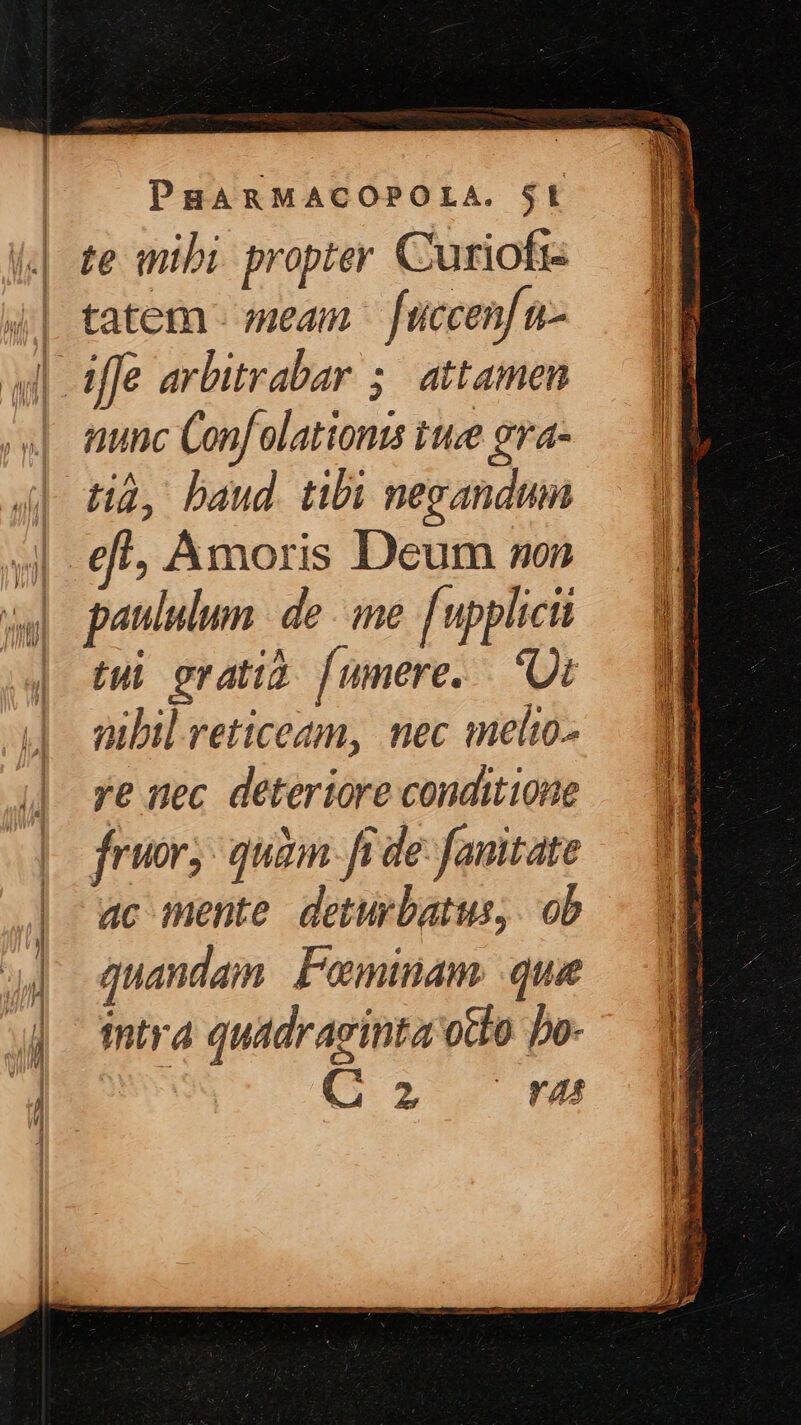 PHARMACOPOLA. 51
te mihi propter Curioſi-
tatem meam ſuccenſu-
iſſe arbitrabar ; attamen
nunc Conſolationis tuæ gra-
tiâ, haud tibi negandum
eſt, Amoris Deum non
paululum de me ſupplicii
tui gratiâ ſumere. Ut
nihil reticeam, nec melio-
re nec deteriore conditione
fruor, quàm ſi de ſanitate
ac mente deturbatus, ob
quandam Fæminam quæ
intra quadraginta octo ho-
C 2 ras